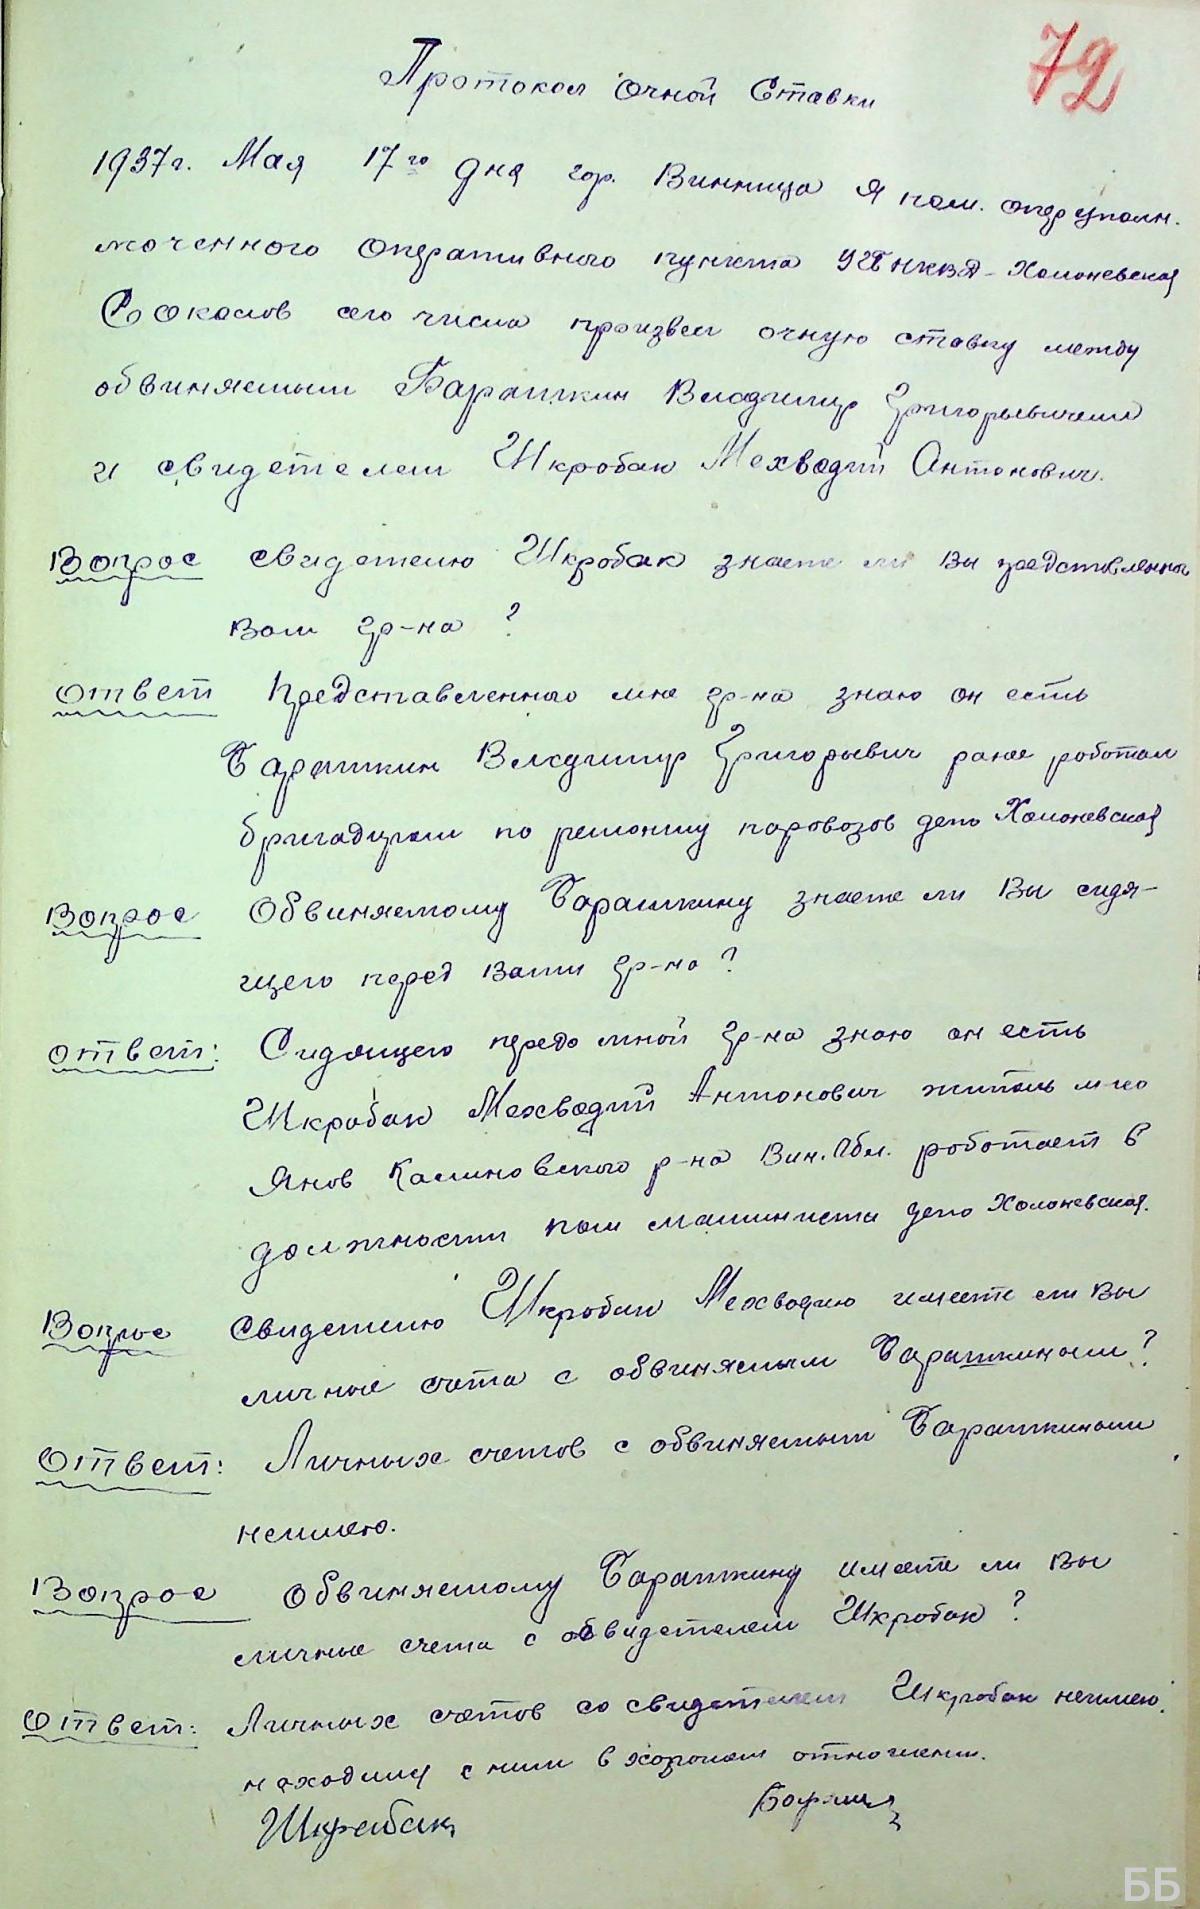 72
Протокол очной Ставки
1937 г. Мая 17го дня гор. Винница Я пом. оперуполн.
моченного оперативного пункта НКВД - Холоневская
Соколов сего числа произвел очную ставку между
обвиняемым Бараткин Владимир Григорьевичем
и свидетелем Шкробак Мехводий Антонович.
Вопрос свидетелю Шкробак знаете ли Вы представленного
Вам гр-на ?
Ответ Представленного мне гр-на знаю он есть
Бараткин Владимир Григорьевич ранее роботал
бригадиром по ремонту паровозов депо Холоневская
Вопрос Обвиняемому Бараткину знаете ли Вы сидя-
щего перед Вами гр-на ?
Ответ: Сидящего передо мной гр-на знаю он есть
Шкробак Мехводий Антонович житель м-ко
Янов Калиновского р-на Вин. Обл. роботает в
должности пом машиниста депо Холоневская.
Вопрос Свидетелю Шкробак Мехводию имеете ли Вы
личные счета с обвиняемым Бараткиным ?
Ответ: Личных счетов с обвиняемым Бараткиным
неимею.
Вопрос Обвиняемому Бараткину имеете ли Вы
личные счета с свидетелем Шкробак ?
Ответ: Личных счетов со свидетелем Шкробак неимею.
находился с ним в хорошем отношении.
Шкрабак
ББ